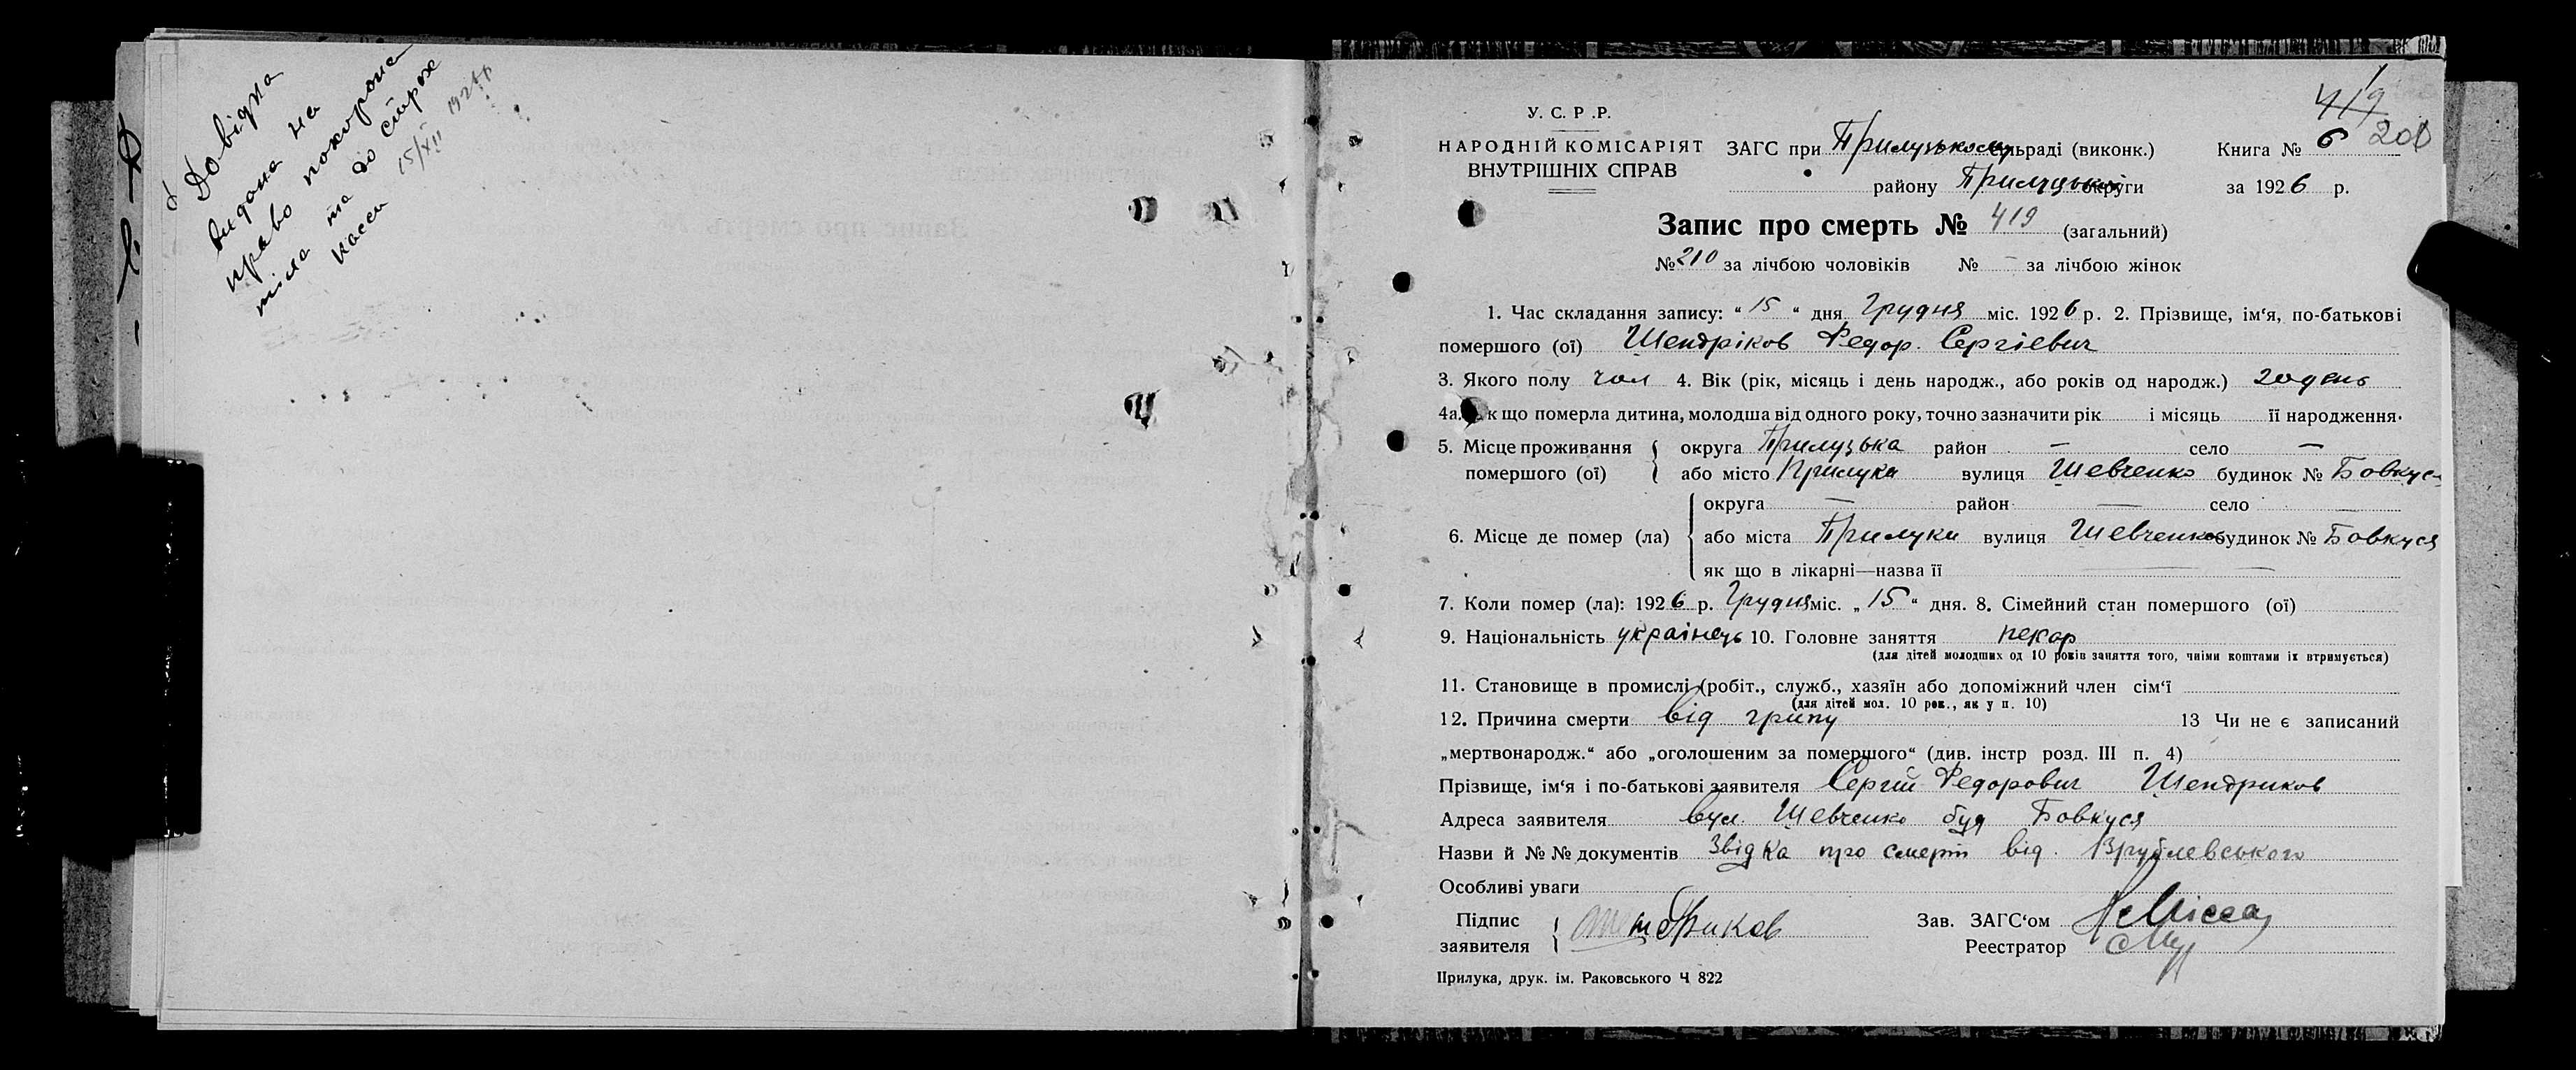 Довідка
видана на
право похорона
тіла та до страх
касси 15/XII 1926 р
419
200
У. С. Р. Р.
НАРОДНІЙ КОМІСАРІЯТ
ВНУТРІШНІХ СПРАВ
ЗАГС при Прилуцькому раді (виконк.) Книга № 6
району Прилуцької округи за 1926 р.
Запис про смерть № 419 (загальний)
№ 210 за лічбою чоловіків № — за лічбою жінок
1. Час складання запису: “ 15 “ дня Грудня міс. 1926 р. 2. Прізвище, ім‘я, по-батькові
помершого (ої) Шендріков Федор Сергієвич
3. Якого полу чол 4. Вік (рік, місяць і день народж., або років од народж.) 20 день
4а. Як що померла дитина, молодша від одного року, точно зазначити рік і місяць її народження.
5. Місце проживання помершого (ої) округа Прилуцька район — село —
або місто Прилука вулиця Шевченко будинок № Бовкуся
6. Місце де помер (ла) округа — район — село —
або міста Прилуки вулиця Шевченко будинок № Бовкуся
як що в лікарні—назва її —
7. Коли помер (ла): 1926 р. Грудня міс. „ 15 “ дня. 8. Сімейний стан помершого (ої)
9. Національність українець 10. Головне заняття пекар
(для дітей молодших од 10 років заняття того, чиїми коштами їх втримується)
11. Становище в промислі (робіт., служб., хазяїн або допоміжний член сім‘ї
(для дітей мол. 10 рок., як у п. 10)
12. Причина смерти від грипу 13 Чи не є записаний
„мертвонародж.“ або „оголошеним за помершого“ (див. інстр розд. III п. 4)
Прізвище, ім‘я і по-батькові заявителя Сергій Федорович Шендриков
Адреса заявителя вул. Шевченко буд Бовкуся
Назви й №№ документів Звідка про смерт від Врублевського
Особливі уваги
Підпис заявителя Шендриков
Зав. ЗАГС‘ом
Реестратор
Прилука, друк. ім. Раковського Ч 822